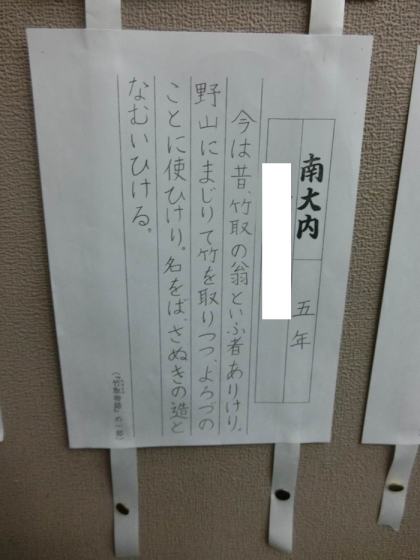 南大内
五年
今は昔、竹取の翁といふ者ありけり。
野山にまじりて竹を取りつつ、よろづの
ことに使ひけり。名をば、さぬきの造と
なむいひける。
（『竹取物語』の一部）